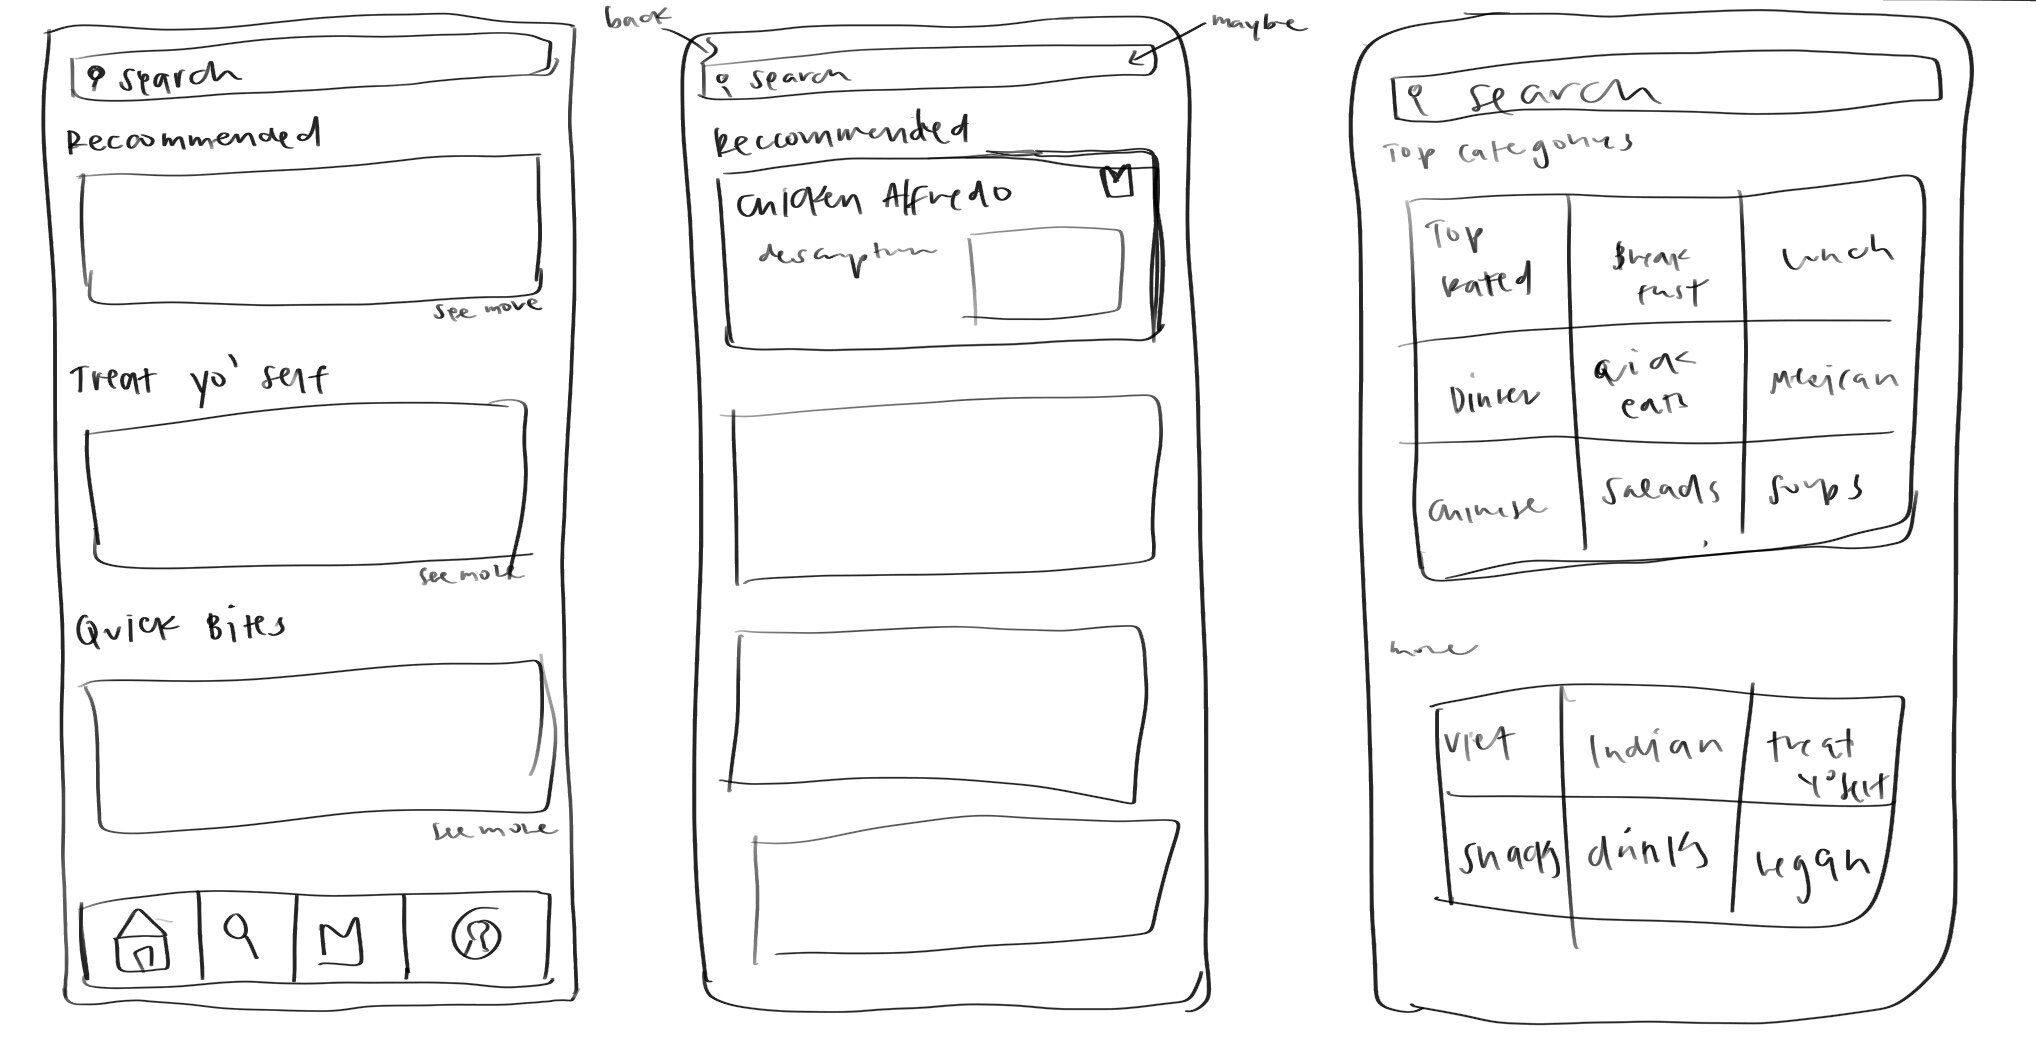 search
Reccommended
see more
Treat yo' self
see more
Quick Bites
see more
back
maybe
search
Reccommended
Chicken Alfredo
description
search
Top categories
Top
Rated
Break
fast
Lunch
Dinner
Quick
eats
Mexican
Chinese
Salads
Soups
more
Viet
Indian
treat
yo' self
snacks
drinks
vegan